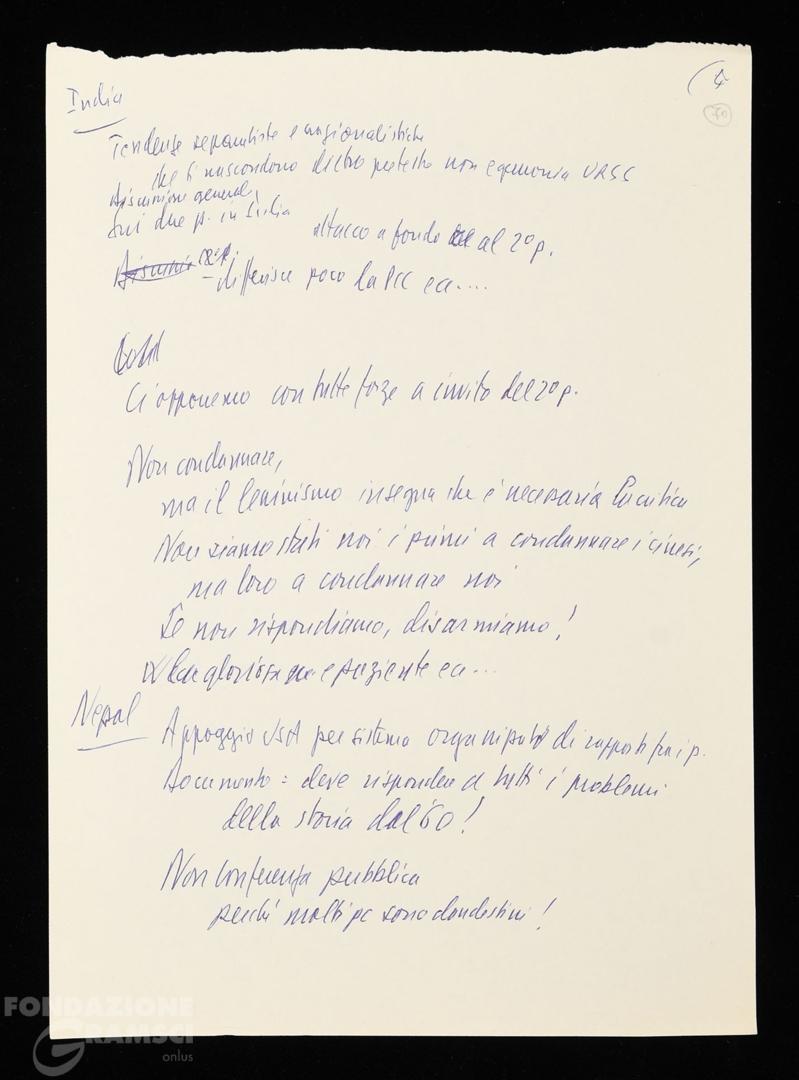 (4
70
India
Tendenze separatiste e nazionalistiche
che si nascondono dietro pretesto non egemonia URSS
Discussione generale,
sui due p. in India
attacco a fondo al 2° p.
differisce poco la PCC ecc....
Ci opponemo con tutte forze a invito del 2° p.
Non condannare,
ma il leninismo insegna che è necessaria la critica
Non siamo stati noi i primi a condannare i cinesi,
ma loro a condannare noi
Se non rispondiamo, disarmiamo!
e paziente ecc...
Nepal
Appoggio USA per sistema organizzato di rapporti fra i p.
Documento = deve rispondere a tutti i problemi
della storia dal '60!
Non conferenza pubblica
perché molti pc sono clandestini!
FONDAZIONE
GRAMSCI
onlus